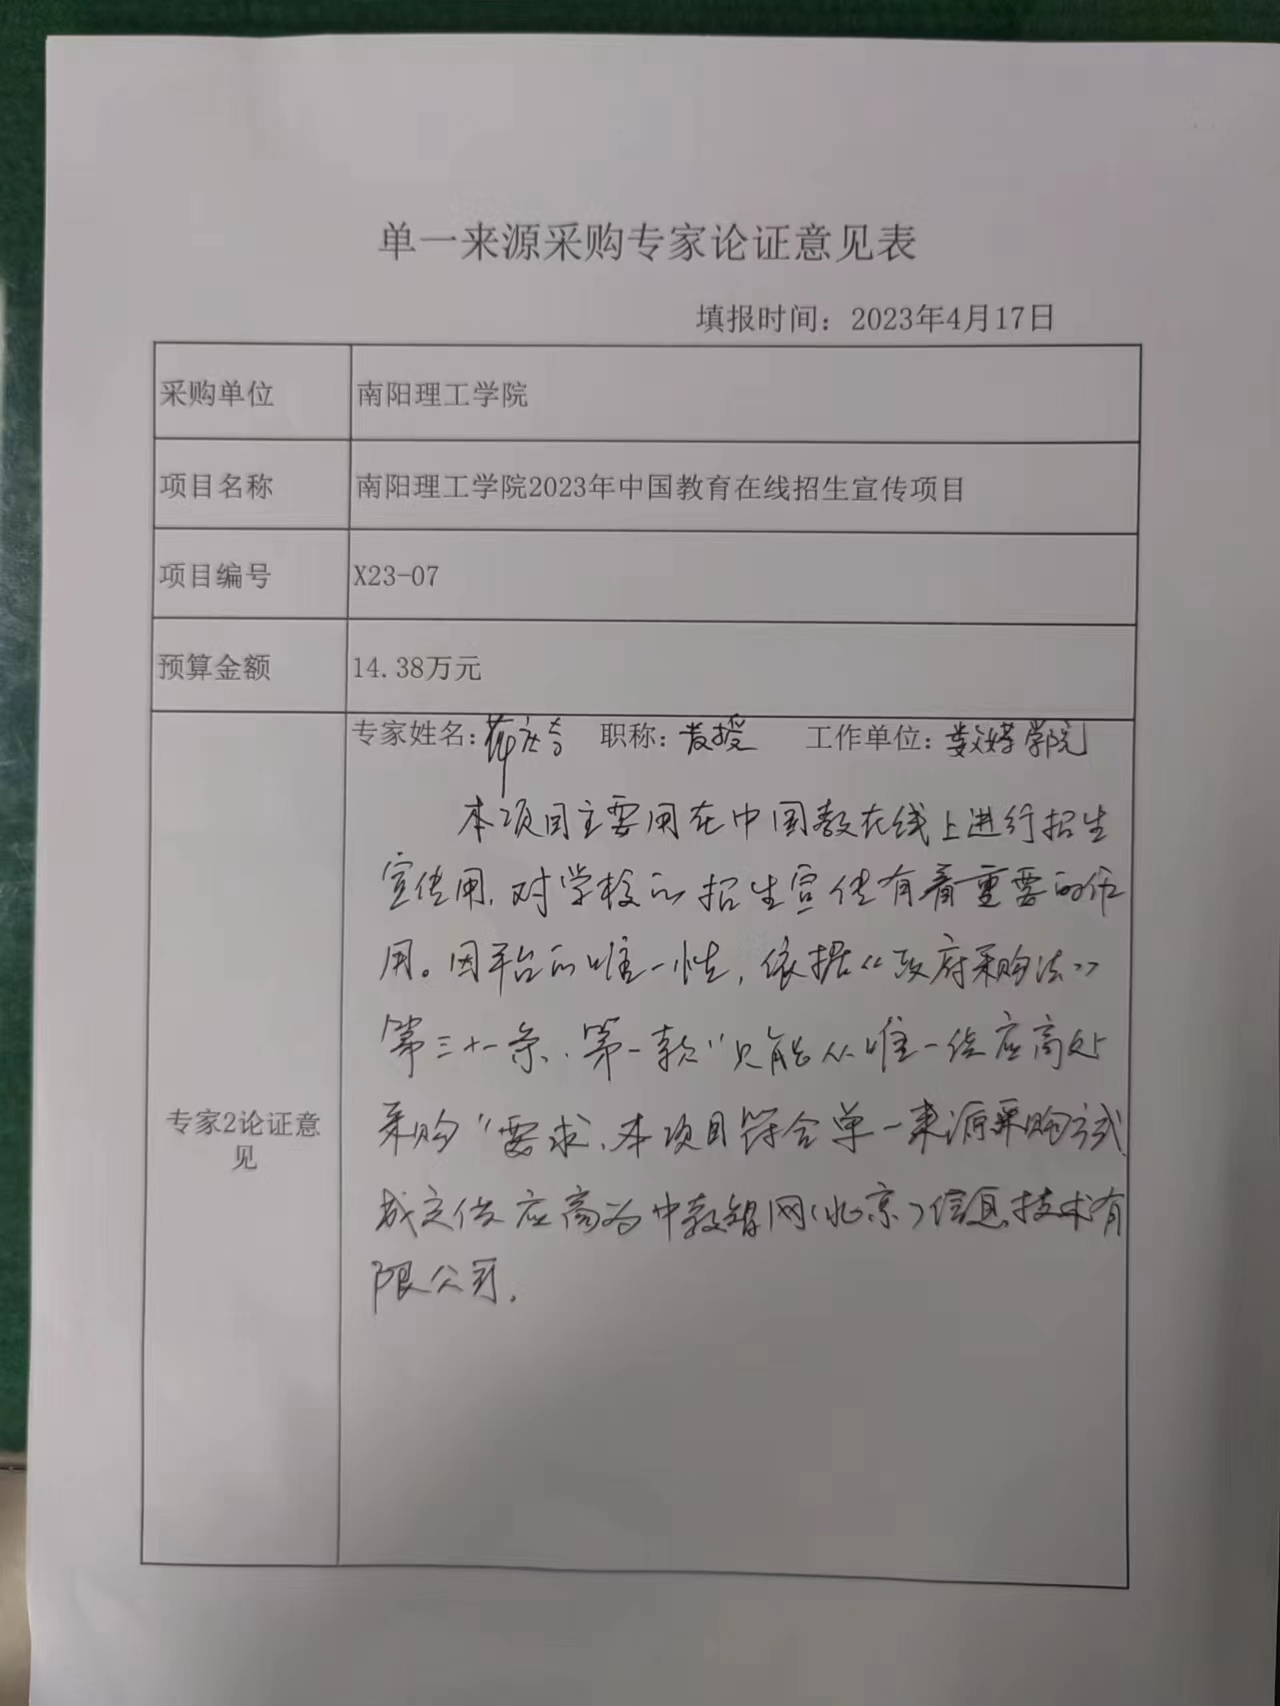 单一来源采购专家论证意见表
填报时间：2023年4月17日
采购单位 南阳理工学院
项目名称 南阳理工学院2023年中国教育在线招生宣传项目
项目编号 X23-07
预算金额 14.38万元
专家姓名： 职称：教授 工作单位：数媒学院
本项目主要用在中国教在线上进行招生
宣传用，对学校的招生宣传有着重要的作
用。因平台的唯一性，依据《政府采购法》
第三十一条、第一款“只能从唯一供应商处
专家2论证意
见
采购”要求、本项目符合单一来源采购方式
供应商为中教智网（北京）信息技术有
限公司。